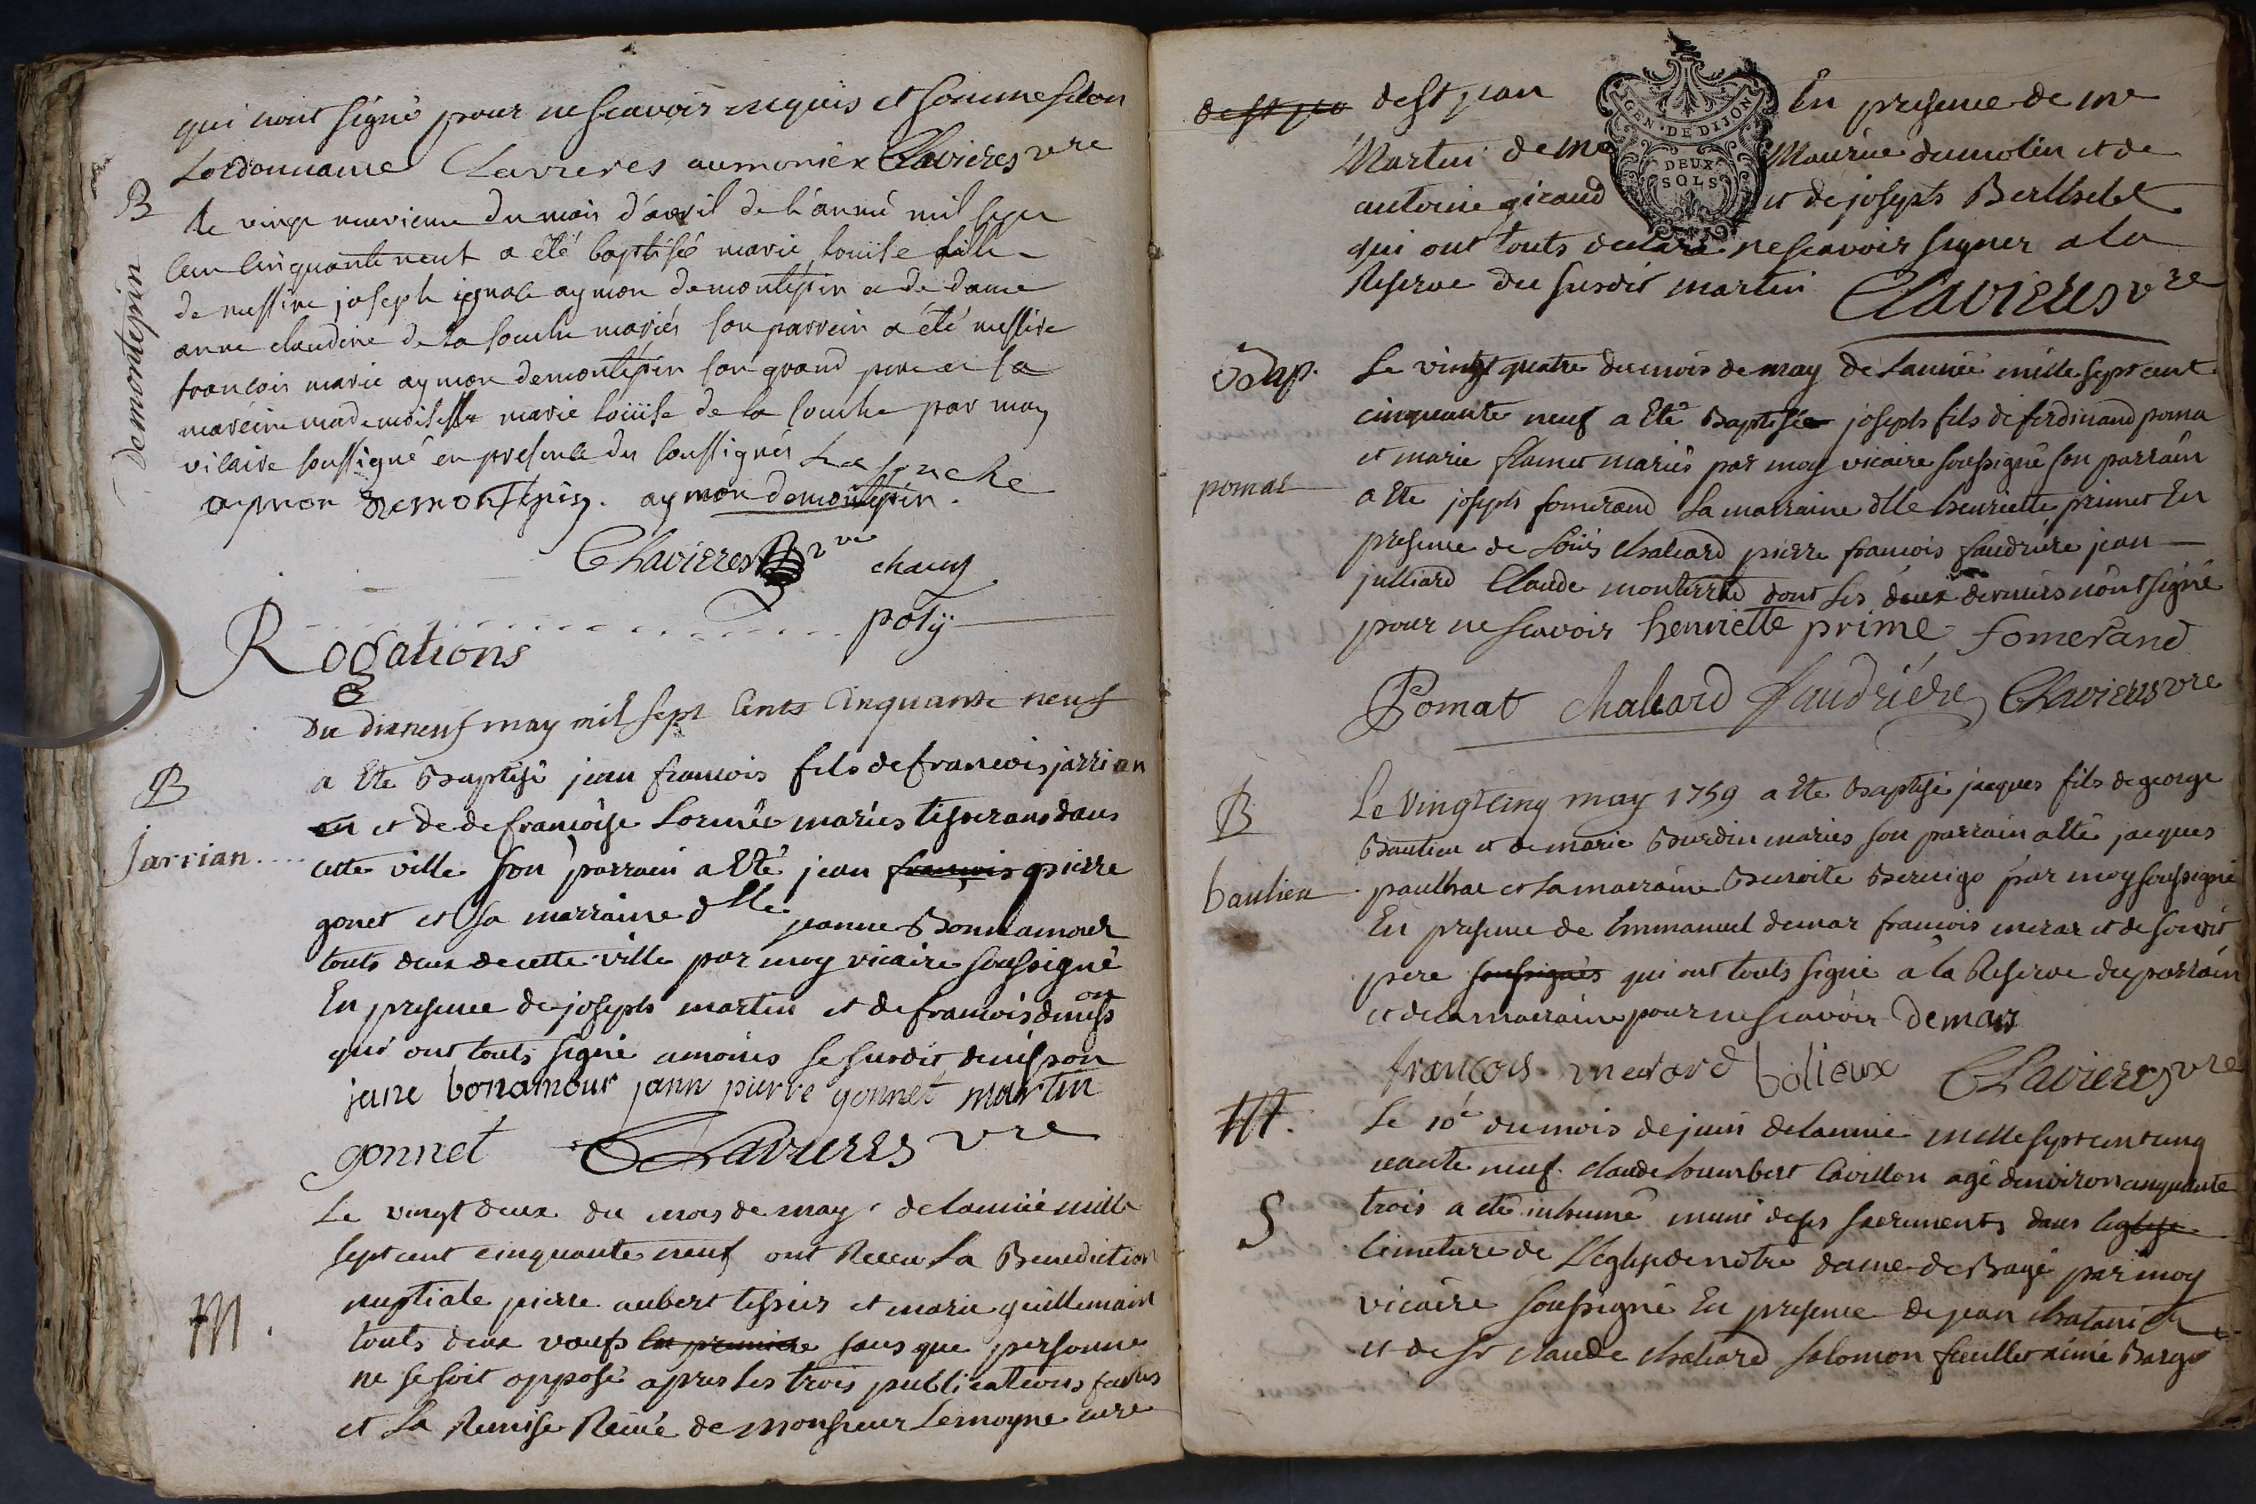 qui nont signé pour ne scavoir enquis et somme selon
Lordonnance Clavieres aumonier Clavieres vre
B
Demontepin
Le vingt neuvieme du mois d'avril de l'année mil sept
cent cinquante neuf a été baptisée marie Louise fille
de messire joseph ignace aymon demontepin et de dame
anne claudine de la souche mariés son parrein a été messire
francois marie aymon demontepin son grand pere et sa
mareine mademoiselle marie Loüise de la souche par moy
vicaire soussigné en presence des soussignés La souche
aymon Demontepin. aymon demontepin.
Clavieres vre chaux
poly
Rogations
Du dixneuf may mil sept Cents Cinquante neuf
B
Jarrian
a Ete Baptisé jean francois fils de francois jarrian
en et de de francoise Lornée mariés tisserans dans
cette ville son parrain a Eté jean francois pierre
gonet et sa marraine dlle jeanne Bonnamour
touts deux de cette ville par moy vicaire soussigné
En presence de joseph martin et de francois deniss on
qui ont touts signé amoins le susdit denisson
jane bonamour jann pierre gonnet martin
gonnet Clavieres vre
M.
Le vingt deux du mois de may de lannée mille
sept cent cinquante neuf ont Receu La Benediction
nuptiale pierre aubert tessier et marie guillemain
touts deux veufs en premiere sans que personne
ne se soit opposé apres les trois publications faites
et La Remise Recüe de Monsieur Lemoyne curé
de st jea de st jean En presence de me
Martin de me Maurice dumolin et de
antoine giraud et de joseph Berthelet
qui ont touts declaré ne scavoir signer a la
Reserve du susdit martin Clavieres vre
GEN. DE DIJON
DEUX SOLS
Bap.
pomat
Le vingt quatre du mois de may de Lannée mille sept cent
cinquante neuf a Eté Baptisée joseph fils de ferdinand poma
et marie flamet mariés par moy vicaire soussigné son parrain
a Ete joseph fomerand La marraine dlle henriette primet En
presence de Loüis chaleard pierre francois faudriere jean
julliard Claude monterrad dont les deux derniers n'ont signé
pour ne scavoir henriette prime fomerand
Pomat chaleard faudriére Clavieres vre
B
baulieu
Le Vingt cinq may 1759 a Ete Baptisé jacques fils de george
Baulieu et de marie Burdin mariés son parrain a Eté jacques
paulhac et la marraine Benoite Bernigo par moy soussigné
En presence de Emmanuel demar francois merar et de son dit
pere soussignés qui ont touts signé a la Reserve du parrain
et de la marraine pour ne scavoir Demars
françois merard bolieux Clavieres vre
M.
S
Le 10e du mois de juin de lannée mille sept cent cinq
uante neuf claude humbert Cavillon agé denviron cinquante
trois a eté inhumé muni de ses sacrements dans leglise
Cimetiere de L'eglise de nôtre dame de Bagé par moy
vicaire soussigné En presence de jean
et de sr claude chaleard salomon feuillet aimé Barge